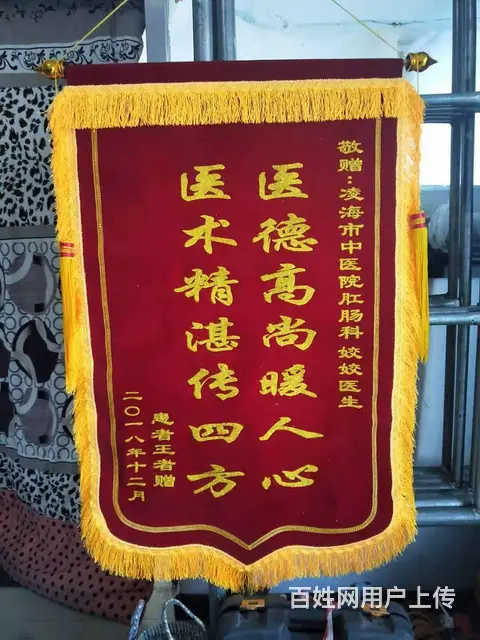 敬赠：凌海市中医院肛肠科 姣姣医生
医德高尚暖人心
医术精湛传四方
患者王者赠
二〇一八年十二月
百姓网用户上传